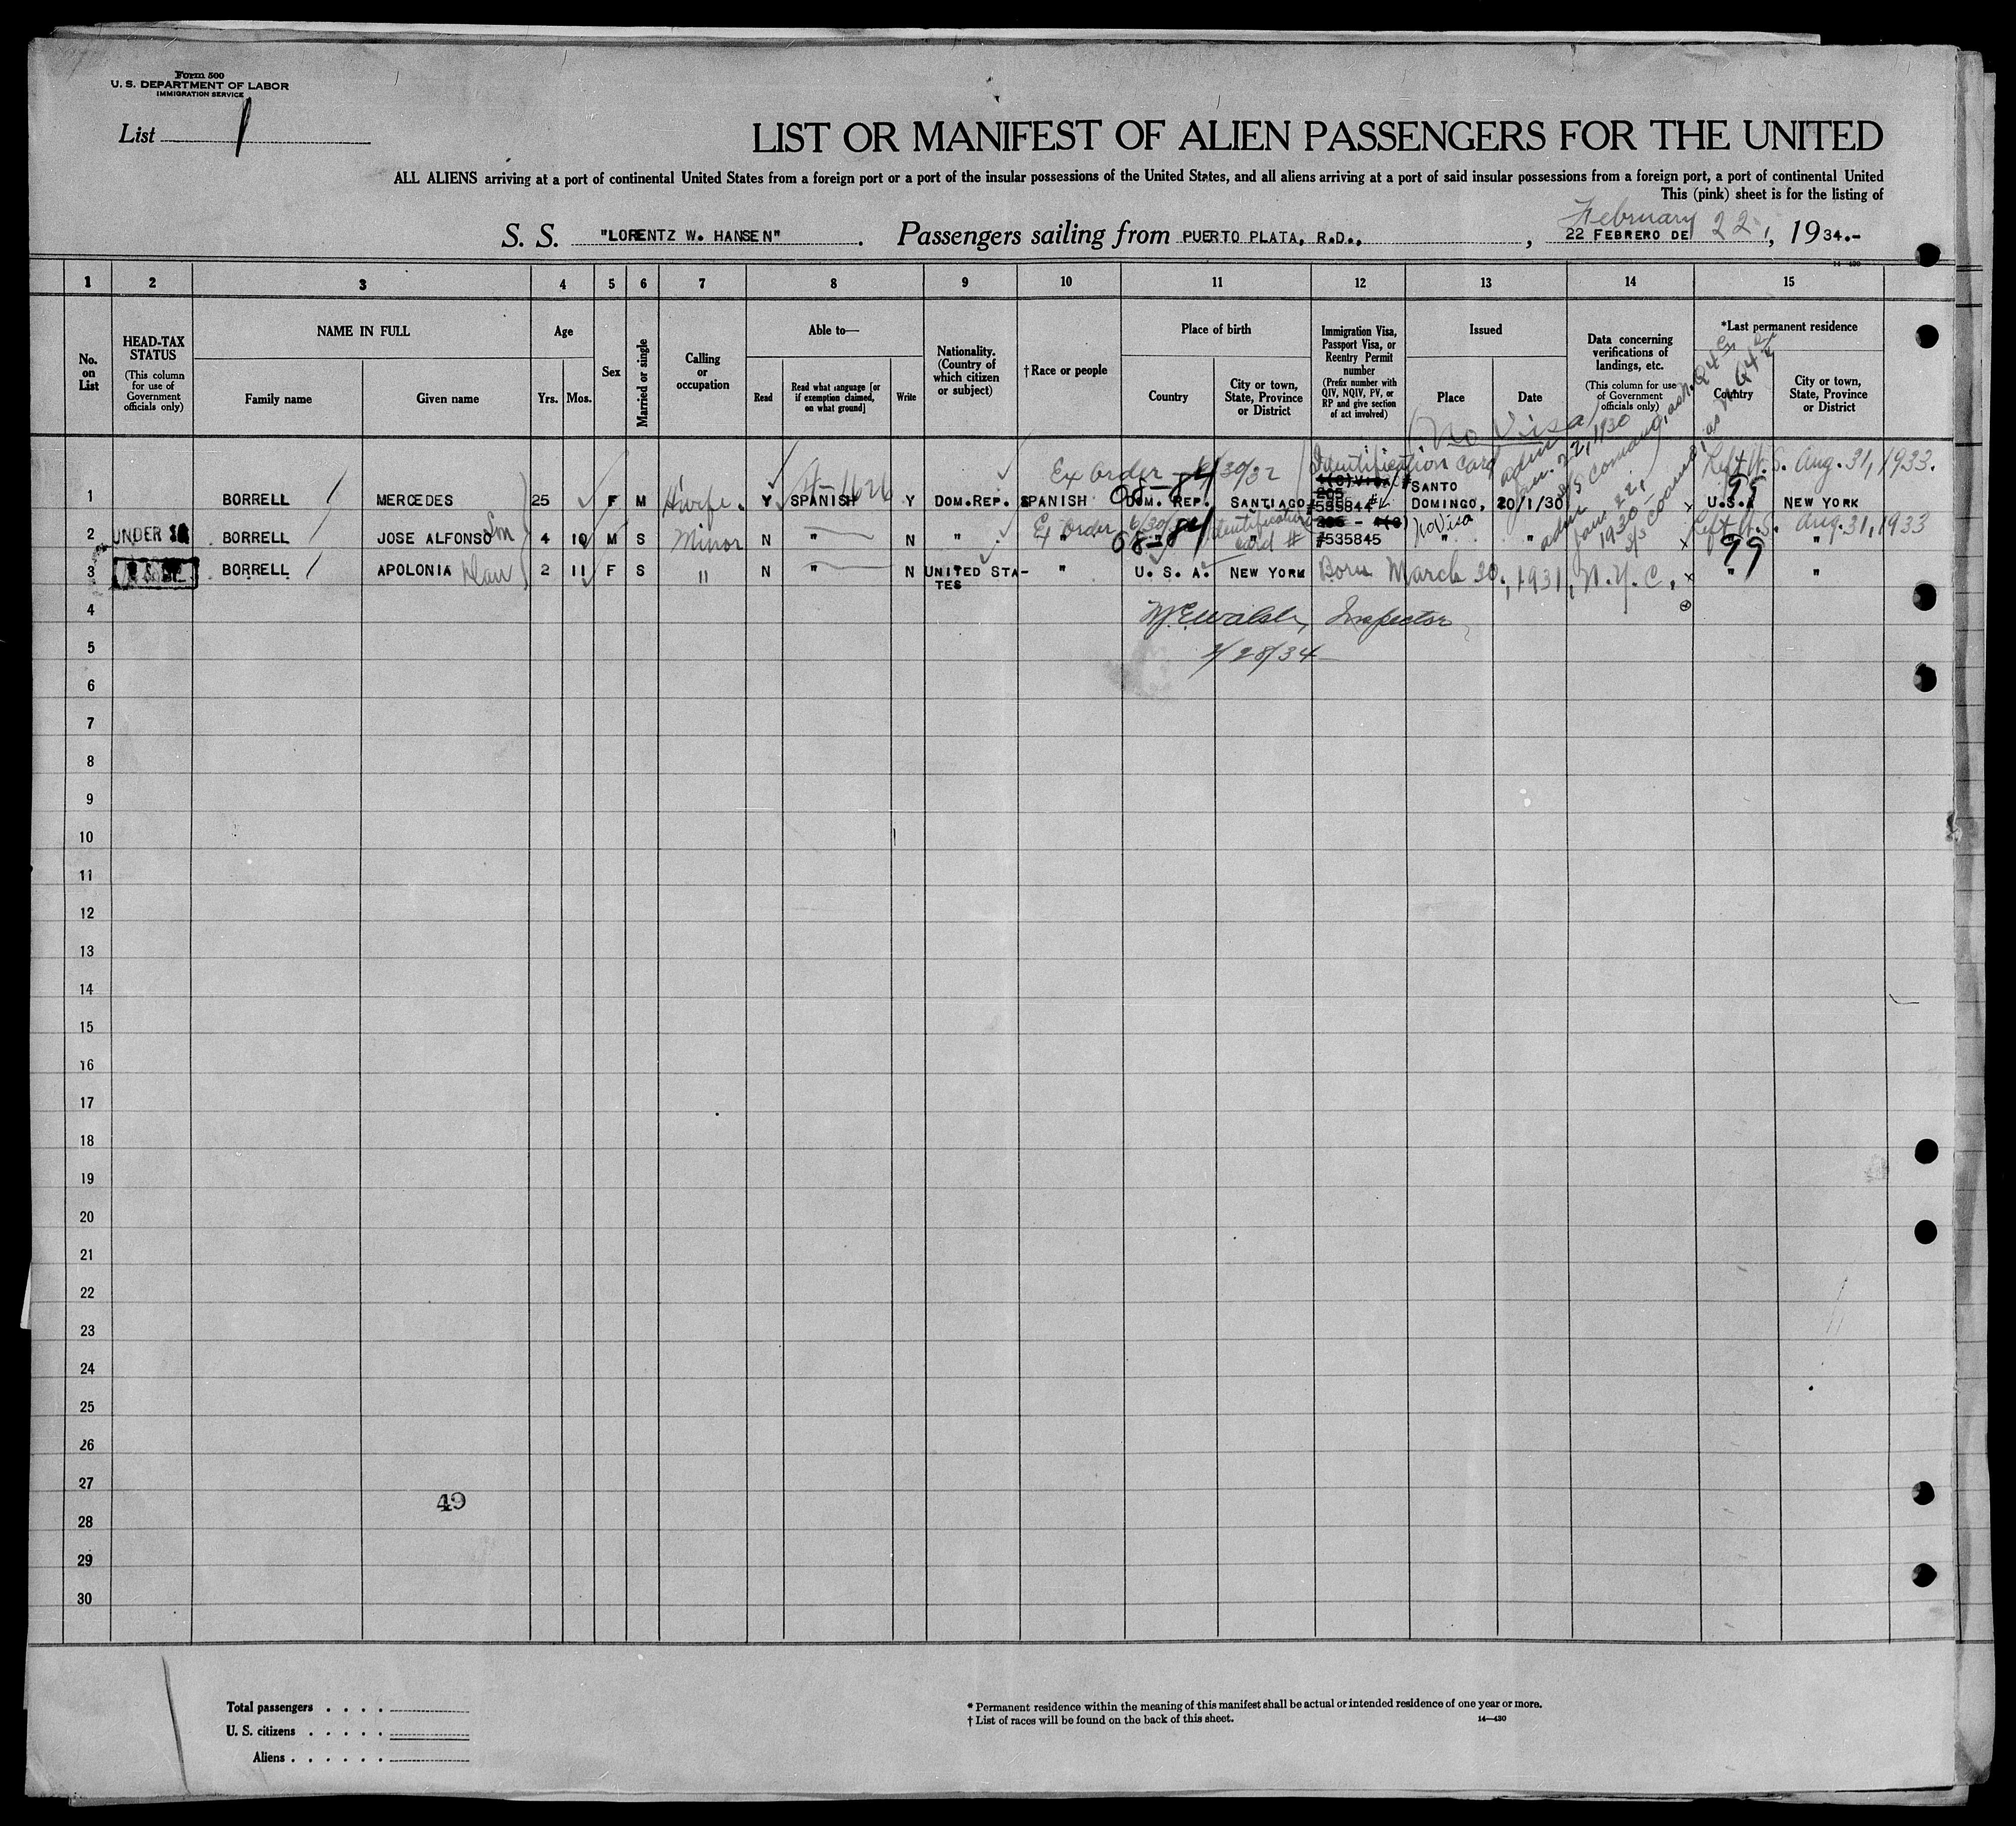 Form 500
U. S. DEPARTMENT OF LABOR
IMMIGRATION SERVICE
List 1
LIST OR MANIFEST OF ALIEN PASSENGERS FOR THE UNITED
ALL ALIENS arriving at a port of continental United States from a foreign port or a port of the insular possessions of the United States, and all aliens arriving at a port of said insular possessions from a foreign port, a port of continental United
This (pink) sheet is for the listing of
February 22,
S. S. "LORENTZ W. HANSEN". Passengers sailing from PUERTO PLATA, R.D., , 22 FEBRERO DE , 1934.-
14-430
1 2 3 4 5 6 7 8 9 10 11 12 13 14 15
No. on List
HEAD-TAX STATUS
(This column for use of Government officials only)
NAME IN FULL
Family name
Given name
Age
Yrs. Mos.
Sex
Married or single
Calling or occupation
Able to—
Read
Read what language [or if exemption claimed, on what ground]
Write
Nationality. (Country of which citizen or subject)
†Race or people
Place of birth
Country
City or town, State, Province or District
Immigration Visa, Passport Visa, or Reentry Permit number
(Prefix number with QIV, NQIV, PV, or RP and give section of act involved)
Issued
Place
Date
Data concerning verifications of landings, etc.
(This column for use of Government officials only)
*Last permanent residence
Country
City or town, State, Province or District
No Visa
Ex Order 6/30/32 Identification Card # Left U.S. Aug. 31, 1933.
adm Jan. 22, 1930
1 BORRELL MERCEDES 25 F M H'wife. Y SPANISH Y DOM.REP. SPANISH DOM. REP. SANTIAGO #535844 SANTO DOMINGO, 20/1/30 U.S. NEW YORK
99
Ex Order 6/30 Identification Card # No Visa Left U.S. Aug. 31, 1933
adm Jan. 22, 1930
2 UNDER 16 BORRELL JOSE ALFONSO Son 4 10 M S Minor N " N " " " " #535845 " " " "
99
3 BORRELL APOLONIA Dau 2 11 F S " N " N UNITED STATES " U. S. A. NEW YORK Born March 30, 1931, N.Y.C. " "
4 Walsh, Inspector
5 2/28/34
6
7
8
9
10
11
12
13
14
15
16
17
18
19
20
21
22
23
24
25
26
27
49
28
29
30
Total passengers . . . .
U. S. citizens . . . . .
Aliens . . . . . .
* Permanent residence within the meaning of this manifest shall be actual or intended residence of one year or more.
† List of races will be found on the back of this sheet.
14—430